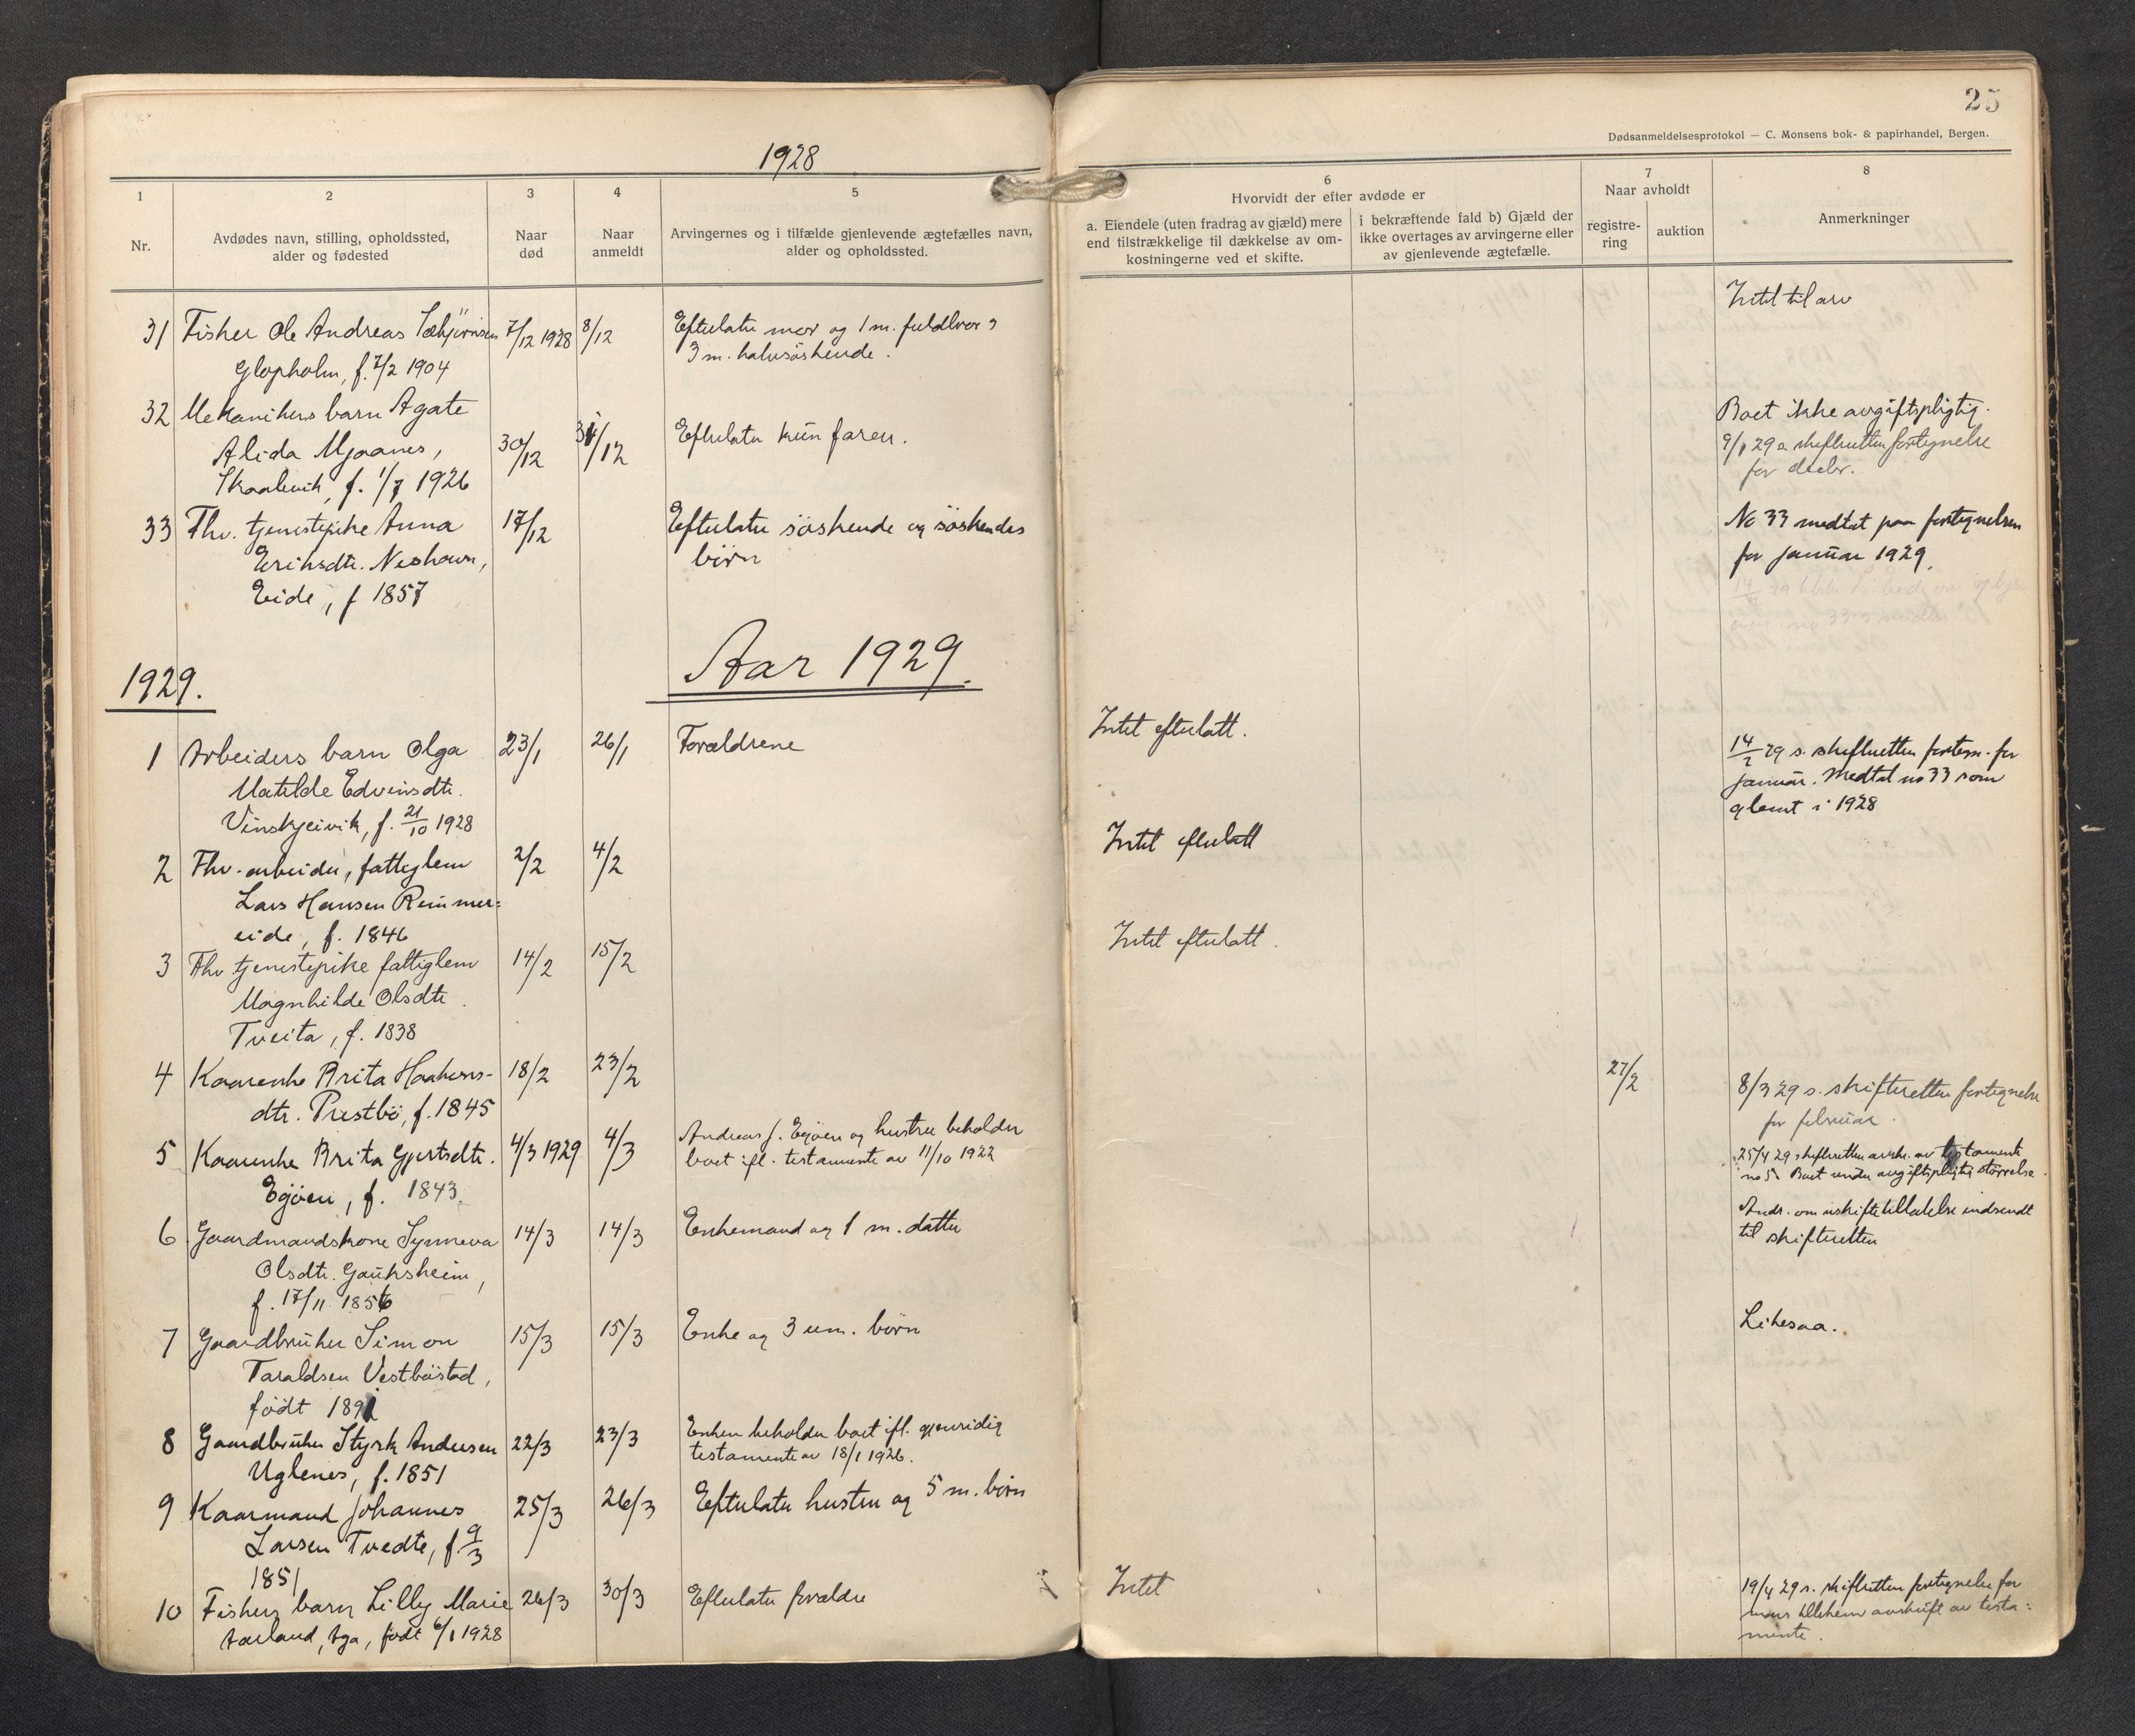 1928
1
2
3
4
5
Nr.
Avdødes navn, stilling, opholdssted,
alder og fødested
Naar
død
Naar
anmeldt
Arvingernes og i tilfælde gjenlevende ægtefælles navn,
alder og opholdssted.
31
Fisker Ole Andreas
7/12 1928
8/12
Efterlater mor og 1 m. fuldbror &
Glopholm, f. 7/2 1904
3 m. halvsöskende.
32
Mekanikers barn Agate
Alida Mjaanes,
30/12
31/12
Efterlater kun faren.
Skaalevik, f. 1/7 1926
33
Fhv. tjenestepike Anna
17/12
Efterlater söskende og söskendes
Eriksdtr. Neshavn,
börn
Eide, f 1857
Aar 1929.
1929.
1
Arbeiders barn Olga
23/1
26/1
Forældrene
Matilde Edvinsdtr.
Vinskjeivik, f. 21/10 1928
2
Fhv. arbeider, fattiglem
2/2
4/2
Lars Hansen Rimmer=
eide, f. 1846
3
Fhv tjenestepike fattiglem
14/2
15/2
Magnhilde Olsdtr.
Tveita, f. 1838
4
Kaarenke Brita Haakons-
18/2
23/2
dtr. Prestbö, f. 1845
5
Kaarenke Brita Gjertsdtr.
4/3 1929
4/3
Andreas J. Egöen og hustru beholder
boet ifl. testamente av 11/10 1922
Egöen, f. 1843.
6
Gaardmandskone Synneva
14/3
14/3
Enkemand og 1 m. datter
Olsdtr. Gauksheim,
f. 17/11 1856
7
Gaardbruker Simon
15/3
15/3
Enke og 3 um. börn
Taraldsen Vestböstad,
födt 1891
8
Gaardbruker Styrk Andersen
22/3
23/3
Enken beholder boet ifl. gjensidig
testamente av 18/1 1926.
Uglenes, f. 1851
9
Kaarmand Johannes
25/3
26/3
Efterlater hustru og 5 m. börn
Larsen Tvedte, f. 9/3
1851
10
Fiskers barn Lilly Marie
26/3
30/3
Efterlater forældre
Aarland, Aga, födt 6/1 1928
25
Dødsanmeldelsesprotokol — C. Monsens bok- & papirhandel, Bergen.
6
Hvorvidt der efter avdøde er
a. Eiendele (uten fradrag av gjæld) mere
end tilstrækkelige til dækkelse av om-
kostningerne ved et skifte.
i bekræftende fald b) Gjæld der
ikke overtages av arvingerne eller
av gjenlevende ægtefælle.
7
Naar avholdt
registre-
ring
auktion
8
Anmerkninger
Intet til arv
Boet ikke avgiftspligtig.
9/1 29 s. skifteretten fortegnelse
for decbr.
No 33 medtat paa fortegnelsen
for januar 1929.
Intet efterlatt.
14/2 29 s. skifteretten fortegn. for
januar. Medtat no 33 som
glemt i 1928
Intet efterlatt
Intet efterlatt.
27/2
8/3 29 s. skifteretten fortegnelse
for februar.
25/4 29 skifteretten avskr. av testamente
no 5. Boet under avgiftspligtig störrelse.
Andr. om uskiftetilladelse indsendt
til skifteretten
Likesaa.
Intet
19/4 29 s. skifteretten fortegnelse for
mars tillikem avskrift av testa=
mente.